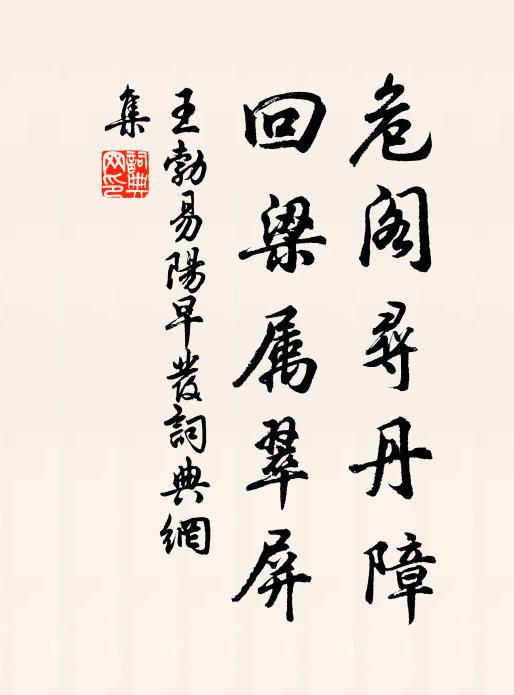 危阁尋丹障
回梁属翠屏
王勃易陽早發詞典網
集
詞典
网印